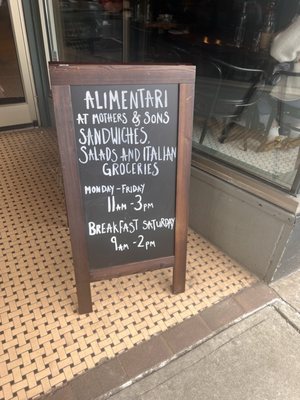 ALIMENTARI
AT MOTHERS & SONS
SANDWICHES,
SALADS AND ITALIAN
GROCERIES
MONDAY-FRIDAY
11AM-3PM
BREAKFAST SATURDAY
9AM-2PM